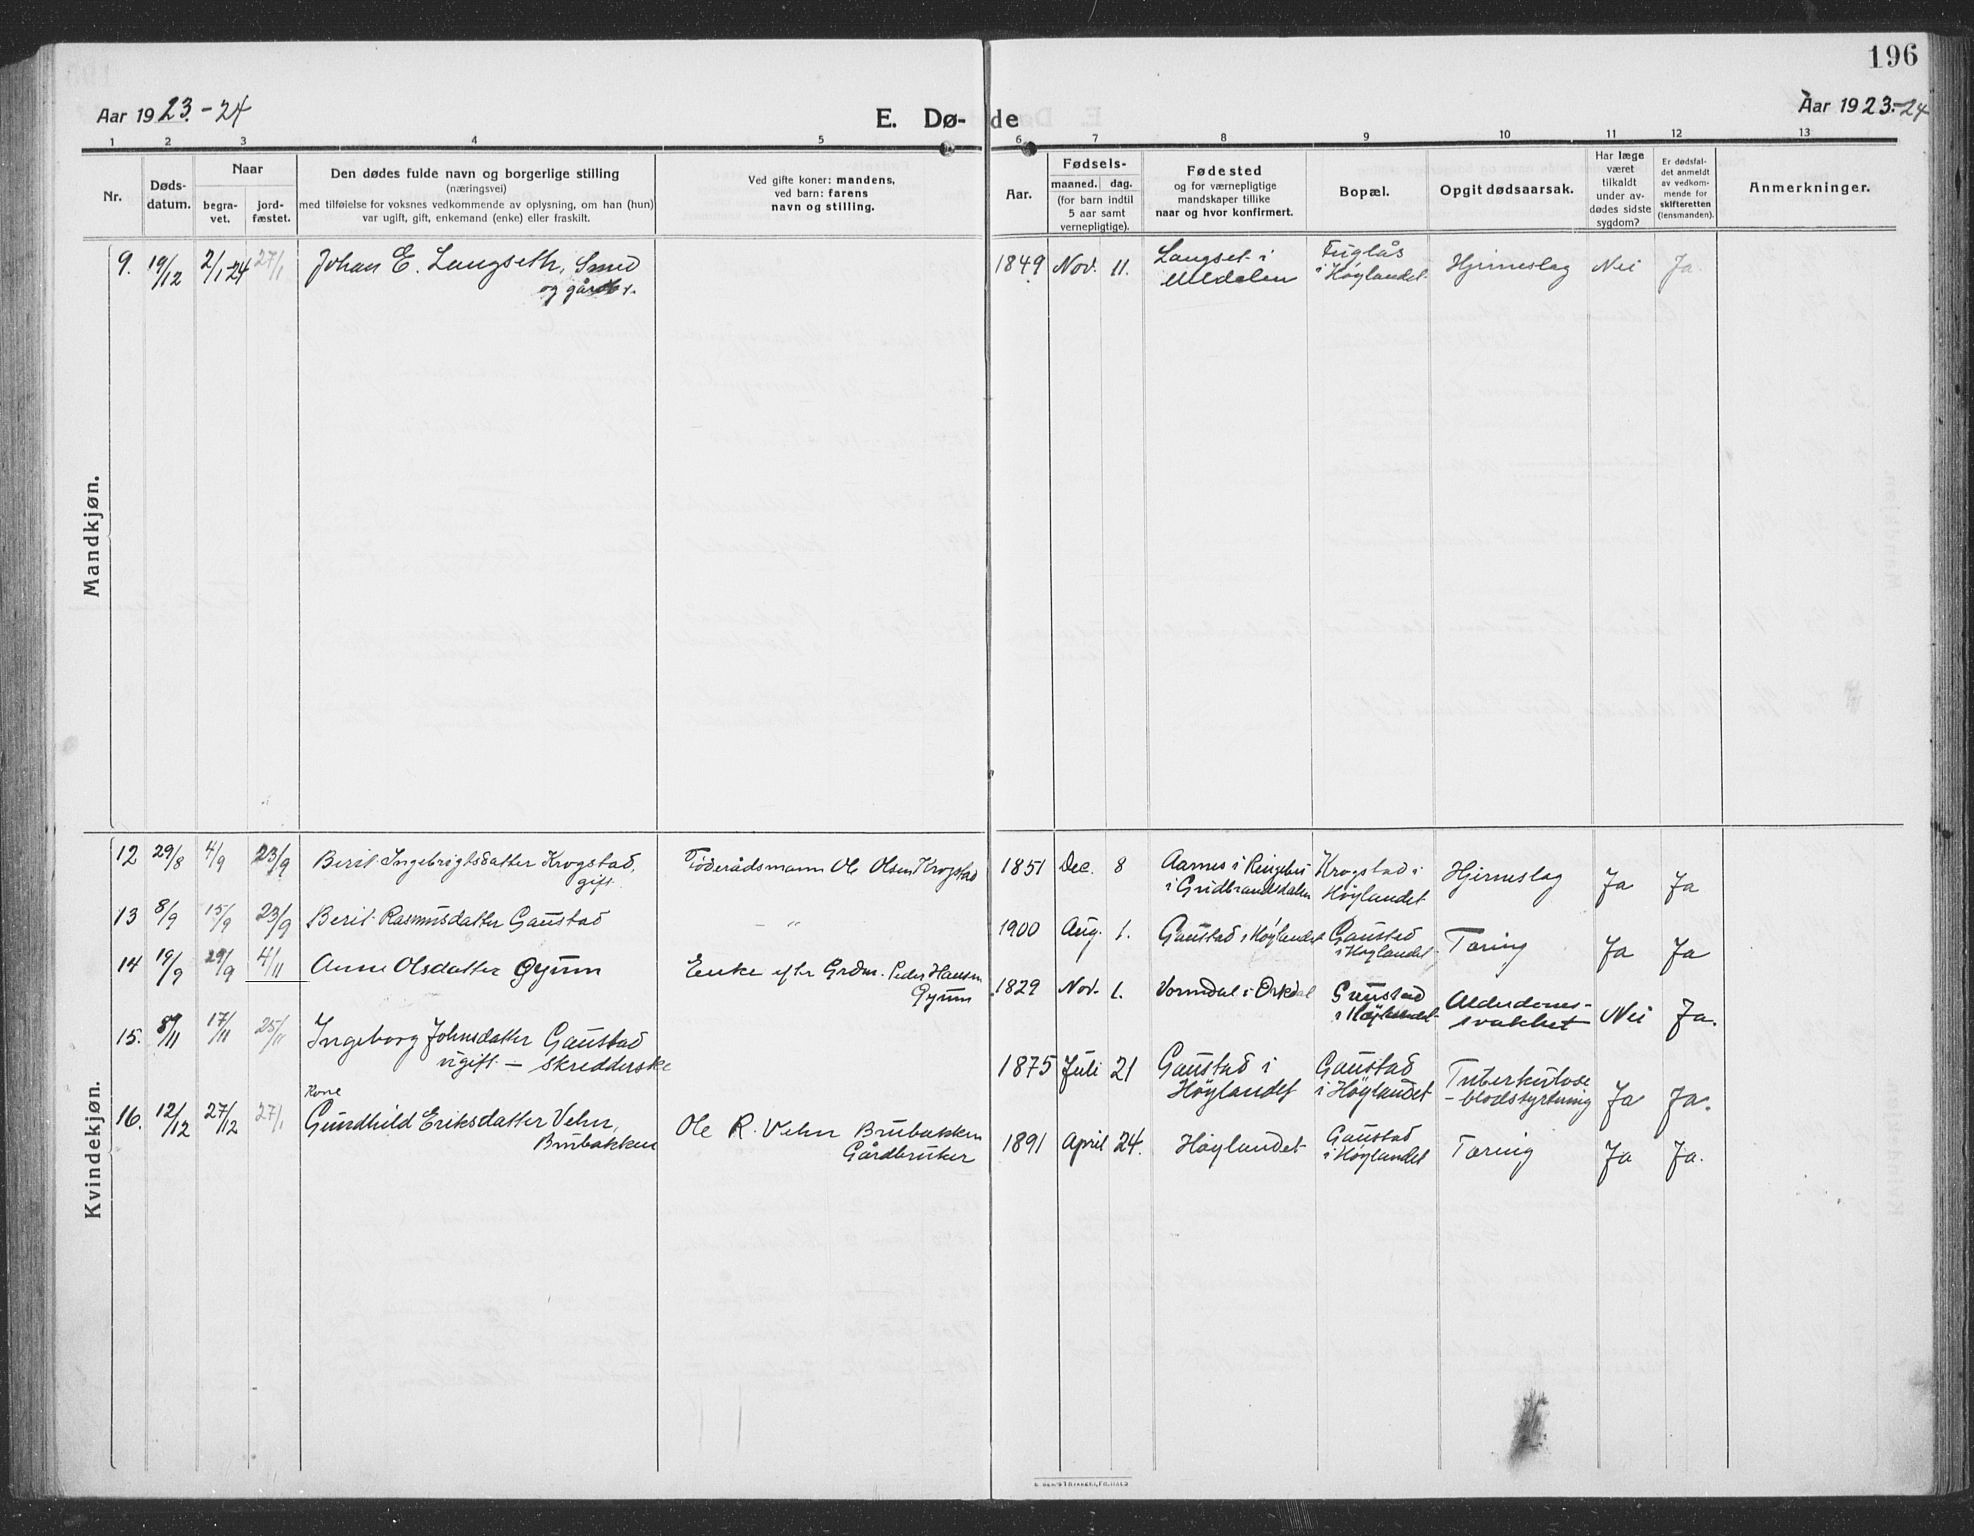 196
Aar 1923.-24
E. Dø-
de
Aar 1923.-24
1 2 3 4 5 6 7 8 9 10 11 12 13
Nr.
Døds-
datum.
Naar
begra-
vet.
jord-
fæstet.
Den dødes fulde navn og borgerlige stilling
(næringsvei)
med tilføielse for voksnes vedkommende av oplysning, om han (hun)
var ugift, gift, enkemand (enke) eller fraskilt.
Ved gifte koner: mandens,
ved barn: farens
navn og stilling.
Aar.
Fødsels-
maaned. dag.
(for barn indtil
5 aar samt
vernepligtige).
Fødested
og for værnepligtige
mandskaper tillike
naar og hvor konfirmert.
Bopæl.
Opgit dødsaarsak.
Har læge
været
tilkaldt
under av-
dødes sidste
sygdom?
Er dødsfal-
det anmeldt
av vedkom-
mende for
skifteretten
(lensmanden).
Anmerkninger.
Mandkjøn.
9. 19/12 2/1-24 27/1 Johan E. Langseth, Smed
og gårdbr.
1849 Nov. 11. Langset i
Meldalen
Fuglås
i Høylandet
Hjerneslag Nei Ja
Kvindekjøn.
12 29/8 4/9 23/9 Berit Ingebrigtsdatter Krogstad,
gift.
Föderådsmann Ole Olsen Krogstad
1851 Dec. 8 Aarnes i Ringebu
i Gudbrandsdalen
Krogstad i
Høylandet
Hjerneslag Ja Ja
13 8/9 15/9 23/9 Berit Rasmusdatter Gaustad
— „
1900 Aug. 1. Gaustad i Høylandet
Gaustad
i Høylandet
Tæring Ja Ja
14 19/9 29/9 4/11 Anne Olsdatter Øyum
Enke efter Grdm. Peder Hansen
Øyum
1829 Nov. 1. Vormdal i Orkdal
Gaustad
i Høylandet
Alderdoms-
svakhet
Nei Ja.
15. 8/11 17/11 25/11 Ingeborg Johnsdatter Gaustad
ugift — skredderske
1875 Juli 21 Gaustad i
Høylandet
Gaustad
i Høylandet
Tuberkulose
-blodstyrtning
Ja Ja.
16. 12/12 27/12 27/1 Kone
Gundhild Eriksdatter Vehn,
Brubakken
Ole R. Vehn Brubakken
Gårdbruker
1891 April 24. Høylandet
Gaustad
i Høylandet
Tæring Ja Ja.